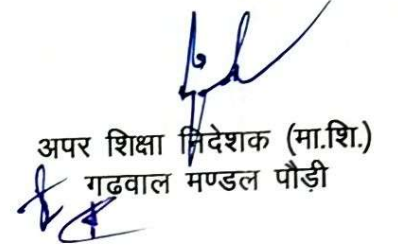 अपर शिक्षा निदेशक (मा.शि.)
गढवाल मण्डल पौड़ी